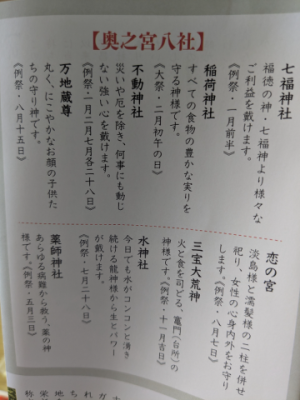 【奥之宮八社】
七福神社
福徳の神・七福神より様々な
ご利益を戴けます。
《例祭・一月前半》
稲荷神社
すべての食物の豊かな実りを
守る神様です。
《大祭・二月初午の日》
不動神社
災いや厄を除き、何事にも動じ
ない強い心を戴けます。
《例祭・一月二月七月各二十八日》
万地蔵尊
丸く、にこやかなお顔の子供た
ちの守り神です。
《例祭・八月十五日》
恋の宮
淡島様と濡髪様の二柱を併せ
祀り、女性の心身内外をお守り
します。《例祭・八月七日》
三宝大荒神
火と食を司どる、竈門(台所)の
神様です。《例祭・十一月吉日》
水神社
今日でも水がコンコンと湧き
続ける龍神様から生とパワー
が戴けます。
《例祭・七月二十八日》
薬師神社
あらゆる病難から救う、薬の神
様です。《例祭・五月三日》